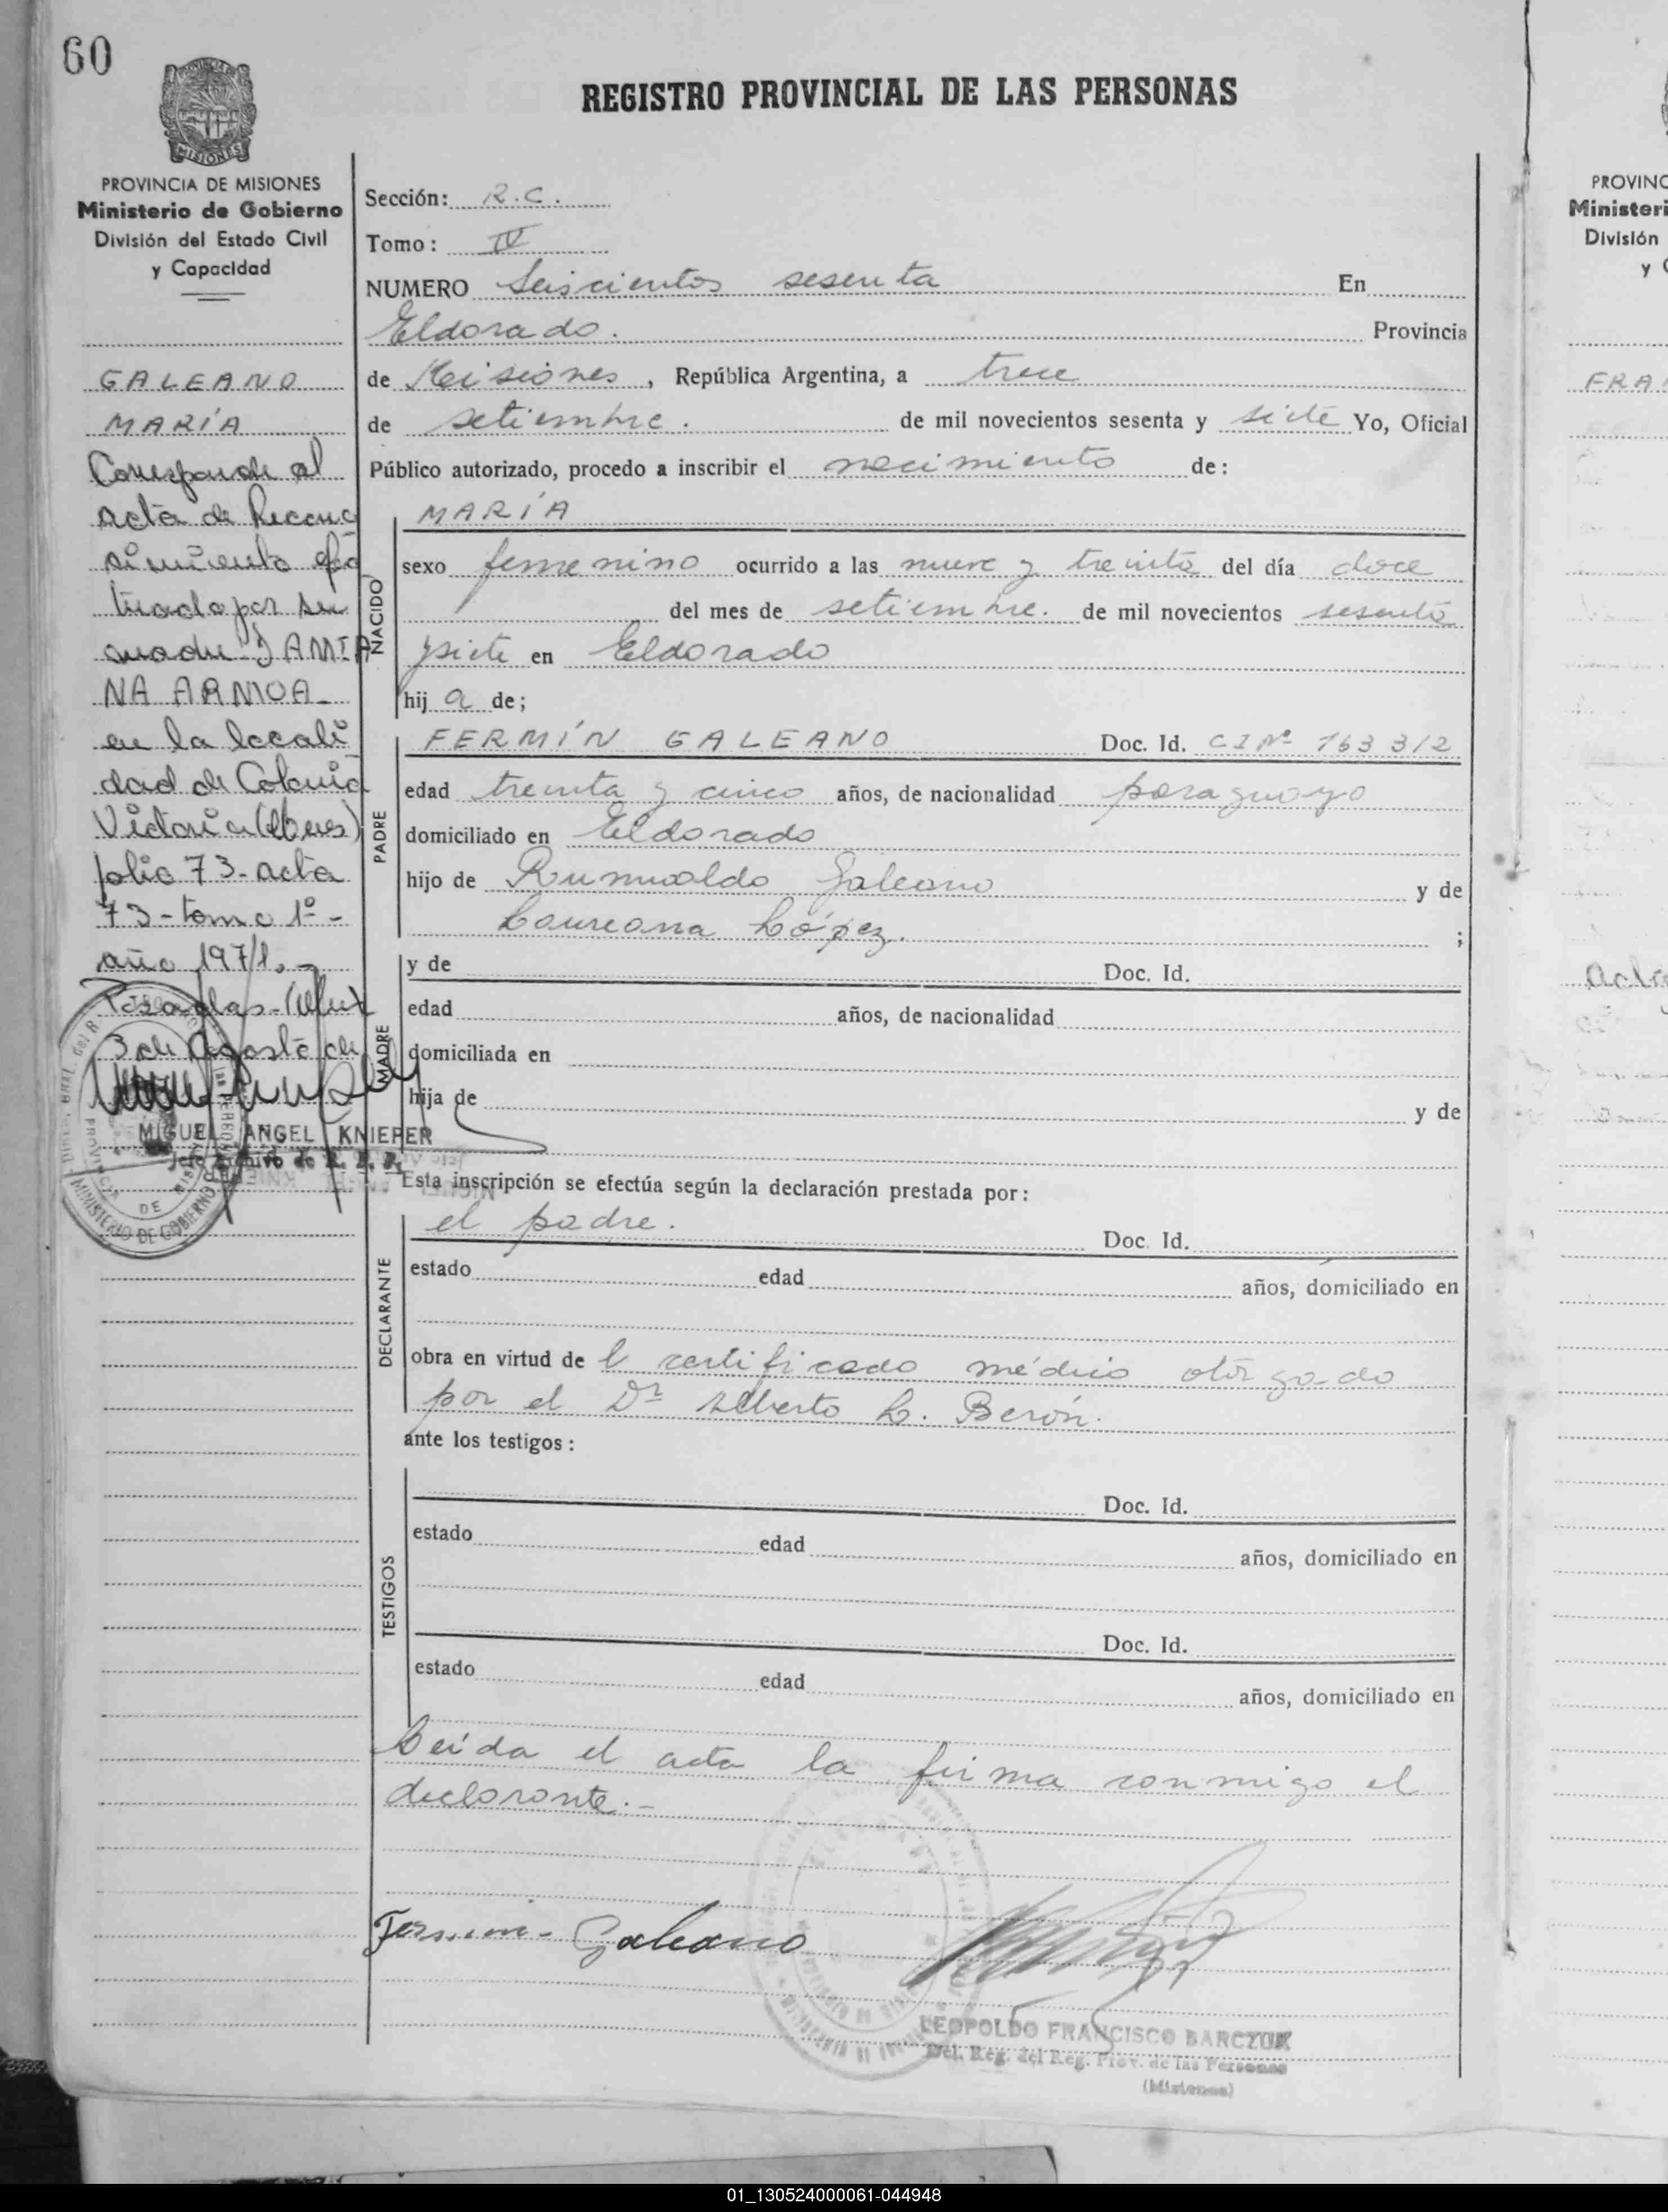 60
REGISTRO PROVINCIAL DE LAS PERSONAS
MISIONES
PROVINCIA DE MISIONES
Ministerio de Gobierno
División del Estado Civil
y Capacidad
GALEANO
MARÍA
Corresponde al
acta de Recono
simiento efec
tuado por su
madre DAMIA
NA ARMOA
en la locali
dad de Colonia
Victoria (Mnes)
folio 73- acta
73- tomo 1º -
año 1971.-
Posadas-
3 de Agosto de
MIGUEL ANGEL KNIEPER
Jefe Archivo de R. P. P.
MINISTERIO DE GOBIERNO
Sección: R.C.
Tomo: IV
NUMERO Seiscientos sesenta En
Eldorado. Provincia
de Misiones, República Argentina, a trece
de setiembre. de mil novecientos sesenta y siete Yo, Oficial
Público autorizado, procedo a inscribir el nacimiento de:
NACIDO
MARÍA
sexo femenino ocurrido a las nueve y treinta del día doce
del mes de setiembre. de mil novecientos sesenta
y siete en Eldorado
hij a de;
PADRE
FERMÍN GALEANO Doc. Id. CI Nº 163 312
edad treinta y cinco años, de nacionalidad paraguayo
domiciliado en Eldorado
hijo de Rumualdo Galeano y de
Laureana López. ;
MADRE
y de Doc. Id.
edad años, de nacionalidad
domiciliada en
hija de y de
Esta inscripción se efectúa según la declaración prestada por:
DECLARANTE
el padre. Doc. Id.
estado edad años, domiciliado en
obra en virtud de l certificado médico otorgado
por el Dr Alberto L. Berón.
ante los testigos:
TESTIGOS
Doc. Id.
estado edad años, domiciliado en
Doc. Id.
estado edad años, domiciliado en
Leída el acta la firma conmigo el
declarante.-
Fermin- Galeano
LEOPOLDO FRANCISCO BARCZUK
Del. Reg. del Reg. Prov. de las Personas
(Misiones)
PROVINC
Ministeri
División
y C
FRA
Acta
01_130524000061-044948